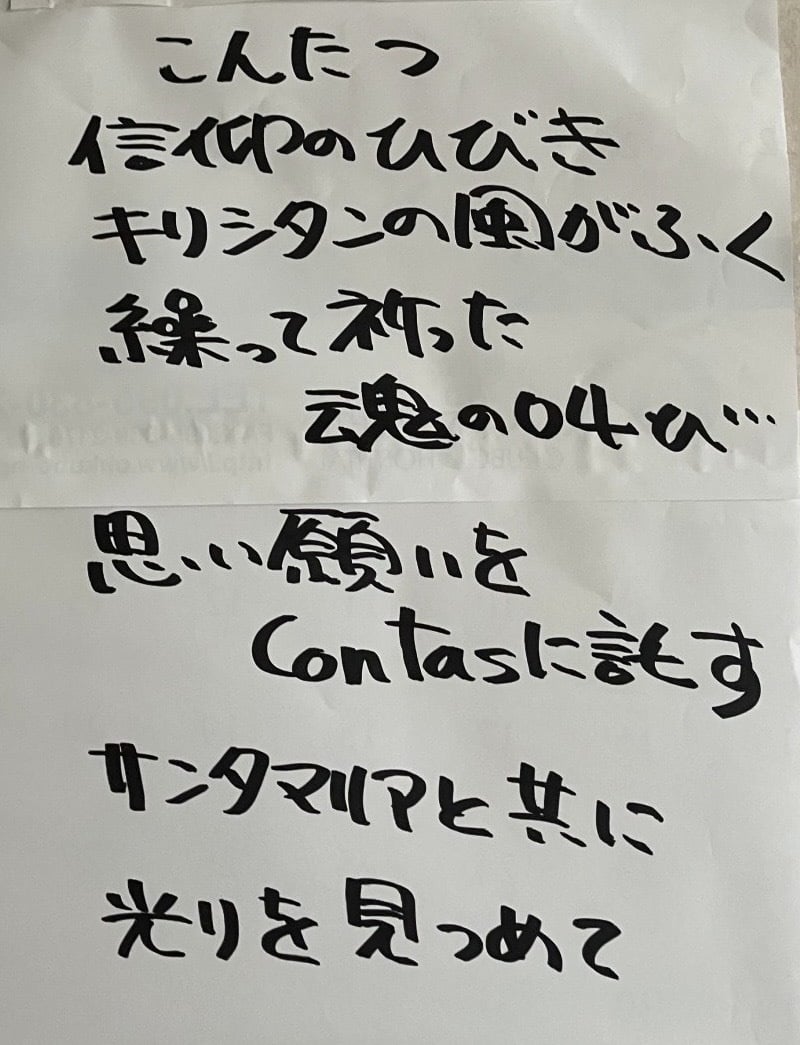 こんたつ
信仰のひびき
キリシタンの風がふく
繰って祈った
魂の叫ひ…
思い願いを
Contasに託す
サンタマリアと共に
光りを見つめて